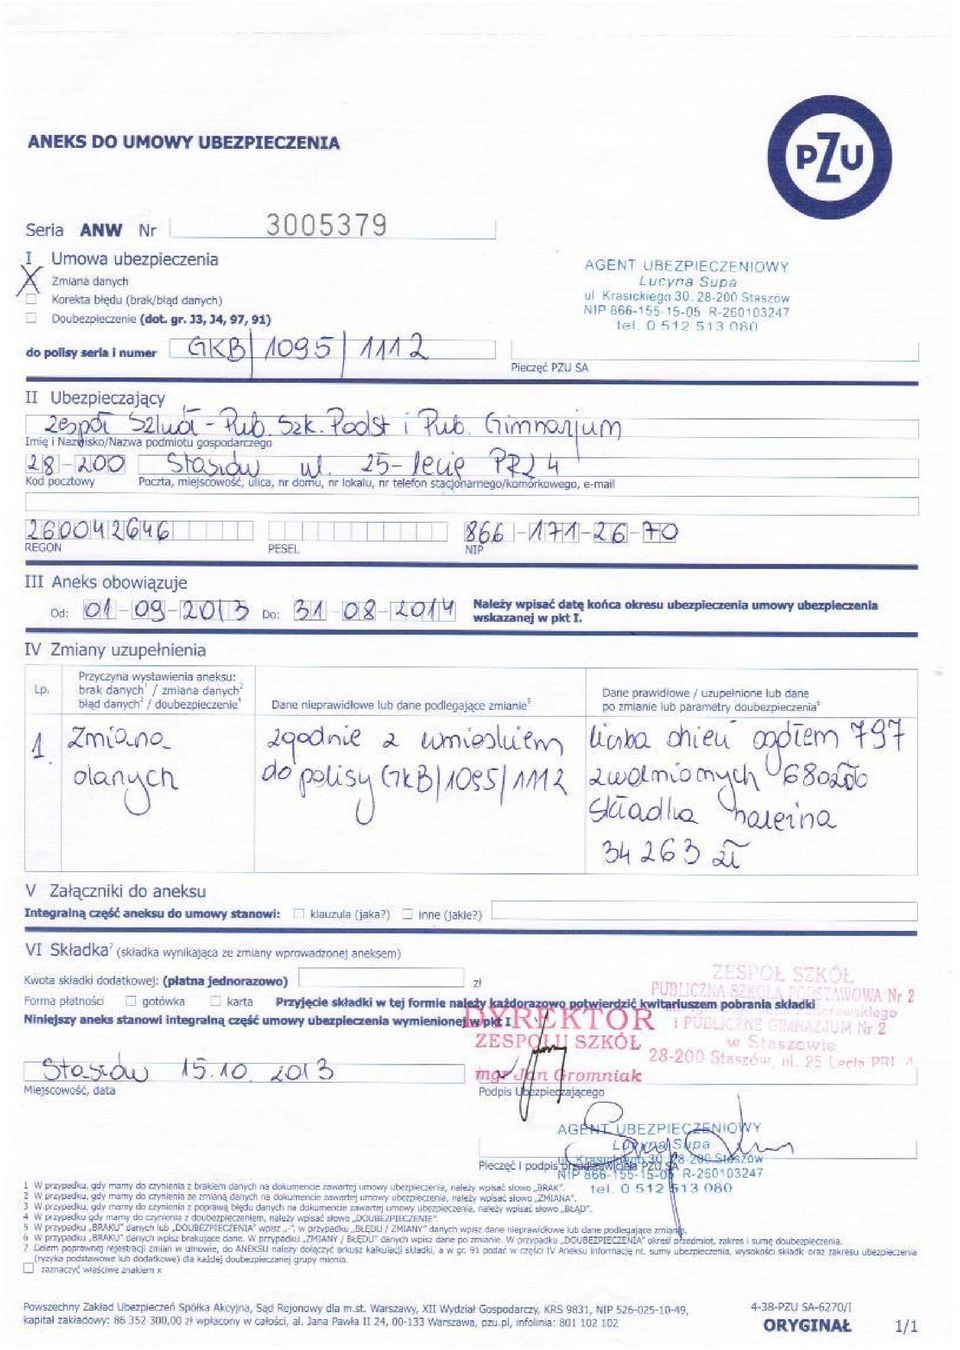 ANEKS DO UMOWY UBEZPIECZENIA
PZU
Seria ANW Nr 3005379
I Umowa ubezpieczenia
X Zmiana danych
Korekta błędu (brak/błąd danych)
Doubezpieczenie (dot. gr. J3, J4, 97, 91)
AGENT UBEZPIECZENIOWY
Lucyna Supa
ul Krasickiego 30, 28-200 Staszów
NIP 866-155-15-05 R-260103247
tel. 0 512 513 080
do polisy seria i numer GKB/1095/1112
Pieczęć PZU SA
II Ubezpieczający
Zespół Szkół - Pub. Szk. Podst i Pub. Gimnazjum
Imię i Nazwisko/Nazwa podmiotu gospodarczego
28-200 Staszów ul. 25-lecia PRL 4
Kod pocztowy Poczta, miejscowość, ulica, nr domu, nr lokalu, nr telefon stacjonarnego/komórkowego, e-mail
260042646 866-171-26-70
REGON PESEL NIP
III Aneks obowiązuje
Od: 01-09-2013 Do: 31-08-2014 Należy wpisać datę końca okresu ubezpieczenia umowy ubezpieczenia
wskazanej w pkt I.
IV Zmiany uzupełnienia
Lp.
Przyczyna wystawienia aneksu:
brak danych1 / zmiana danych2
błąd danych3 / doubezpieczenie4
Dane nieprawidłowe lub dane podlegające zmianie5
Dane prawidłowe / uzupełnione lub dane
po zmianie lub parametry doubezpieczenia6
1. Zmiana
danych
zgodnie z wnioskiem
do polisy GKB/1095/1112
liczba dzieci ogółem 797
zwolnionych 680zł
składka
34263 zł
V Załączniki do aneksu
Integralną część aneksu do umowy stanowi: klauzula (jaka?) inne (jakie?)
VI Składka7 (składka wynikająca ze zmiany wprowadzonej aneksem)
Kwota składki dodatkowej: (płatna jednorazowo) zł
Forma płatności gotówka karta Przyjęcie składki w tej formie należy każdorazowo potwierdzić kwitariuszem pobrania składki
Niniejszy aneks stanowi integralną część umowy ubezpieczenia wymienionej w pkt I
ZESPÓŁ SZKÓŁ
PUBLICZNA SZKOŁA PODSTAWOWA Nr 2
i PUBLICZNE GIMNAZJUM Nr 2
w Staszowie
28-200 Staszów, ul. 25 Lecia PRL 4
DYREKTOR
ZESPOŁU SZKÓŁ
mgr Jan Gromniak
Staszów 15.10.2013
Miejscowość, data
Podpis Ubezpieczającego
AGENT UBEZPIECZENIOWY
Lucyna Supa
ul. Krasickiego 30, 28-200 Staszów
NIP 866-155-15-05 R-260103247
tel. 0 512 513 080
Pieczęć i podpis przedstawiciela PZU SA
1 W przypadku, gdy mamy do czynienia z brakiem danych na dokumencie zawartej umowy ubezpieczenia, należy wpisać słowo „BRAK”.
2 W przypadku, gdy mamy do czynienia ze zmianą danych na dokumencie zawartej umowy ubezpieczenia, należy wpisać słowo „ZMIANA”.
3 W przypadku, gdy mamy do czynienia z poprawą błędu danych na dokumencie zawartej umowy ubezpieczenia, należy wpisać słowo „BŁĄD”.
4 W przypadku gdy mamy do czynienia z doubezpieczeniem, należy wpisać słowo „DOUBEZPIECZENIE”.
5 W przypadku „BRAKU” danych lub „DOUBEZPIECZENIA” wpisz „-”, w przypadku „BŁĘDU / ZMIANY” danych wpisz dane nieprawidłowe lub dane podlegające zmianie.
6 W przypadku „BRAKU” danych wpisz brakujące dane. W przypadku „ZMIANY / BŁĘDU” danych wpisz dane po zmianie. W przypadku „DOUBEZPIECZENIA” określ przedmiot, zakres i sumę doubezpieczenia.
7 Celem poprawnej rejestracji zmian w umowie, do ANEKSU należy dołączyć arkusz kalkulacji składki, a w gr. 91 podać w części IV Aneksu informację nt. sumy ubezpieczenia, wysokości składk oraz zakresu ubezpieczenia
(ryzyka podstawowe lub dodatkowe) dla każdej doubezpieczanej grupy mienia.
zaznaczyć właściwe znakiem x
Powszechny Zakład Ubezpieczeń Spółka Akcyjna, Sąd Rejonowy dla m.st. Warszawy, XII Wydział Gospodarczy, KRS 9831, NIP 526-025-10-49,
kapitał zakładowy: 86 352 300,00 zł wpłacony w całości, al. Jana Pawła II 24, 00-133 Warszawa, pzu.pl, infolinia: 801 102 102
4-38-PZU SA-6270/I
ORYGINAŁ 1/1